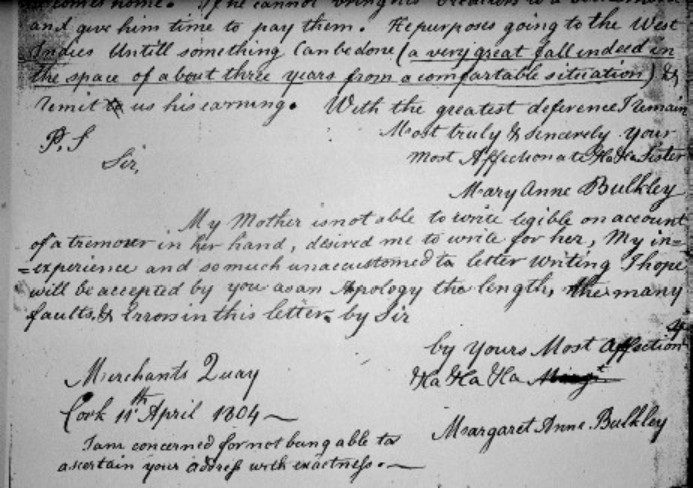 comes home. If he cannot bring his Creditors to a
and give him time to pay them. He purposes going to the West
Indies Untill something Can be done (a very great fall indeed in
the space of about three years from a comfortable situation) &
remit to us his earning. With the greatest deference I remain
P.S
Most truly & sincerely your
Sir,
most Affectionate &ca &ca Sister
Mary Anne Bulkley
My Mother is not able to write legible on account
of a tremour in her hand, desired me to write for her, My in=
=experience and so much unaccustomed to letter writing I hope
will be accepted by you as an Apology the length, the many
faults, & Errors in this letter. by Sir
by Yours Most Affection
&ca &ca &ca
Merchants Quay
Cork 11th April 1804
Margaret Anne Bulkley
I am concerned for not being able to
ascertain your address with exactness.